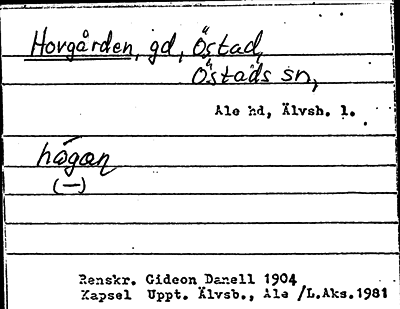 Hovgården, gd, Östad,
Östads sn,
Ale hd, Älvsb. l.
hågan
(—)
Renskr. Gideon Danell 1904
Kapsel Uppt. Älvsb., Ale /L.Aks.1981